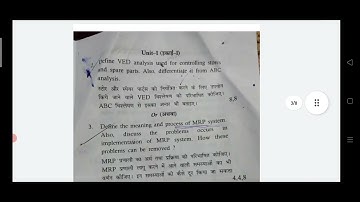 Unit-I (इकाई-I)
Define VED analysis used for controlling stores
and spare parts. Also, differentiate it from ABC
analysis.
स्टोर और स्पेयर पार्ट्स को नियंत्रित करने के लिए उपयोग
किये जाने वाले VED विश्लेषण को परिभाषित कीजिए।
ABC विश्लेषण से इसका अन्तर भी बताइए। 8,8
Or (अथवा)
3. Define the meaning and process of MRP system.
Also, discuss the problems occurs in
implementation of MRP system. How these
problems can be removed ?
MRP प्रणाली का अर्थ तथा प्रक्रिया को परिभाषित कीजिए।
MRP प्रणाली लागू करने में आने वाली समस्याओं का भी
वर्णन कीजिए। इन समस्याओं को कैसे दूर किया जा सकता
4,4,8
3/8